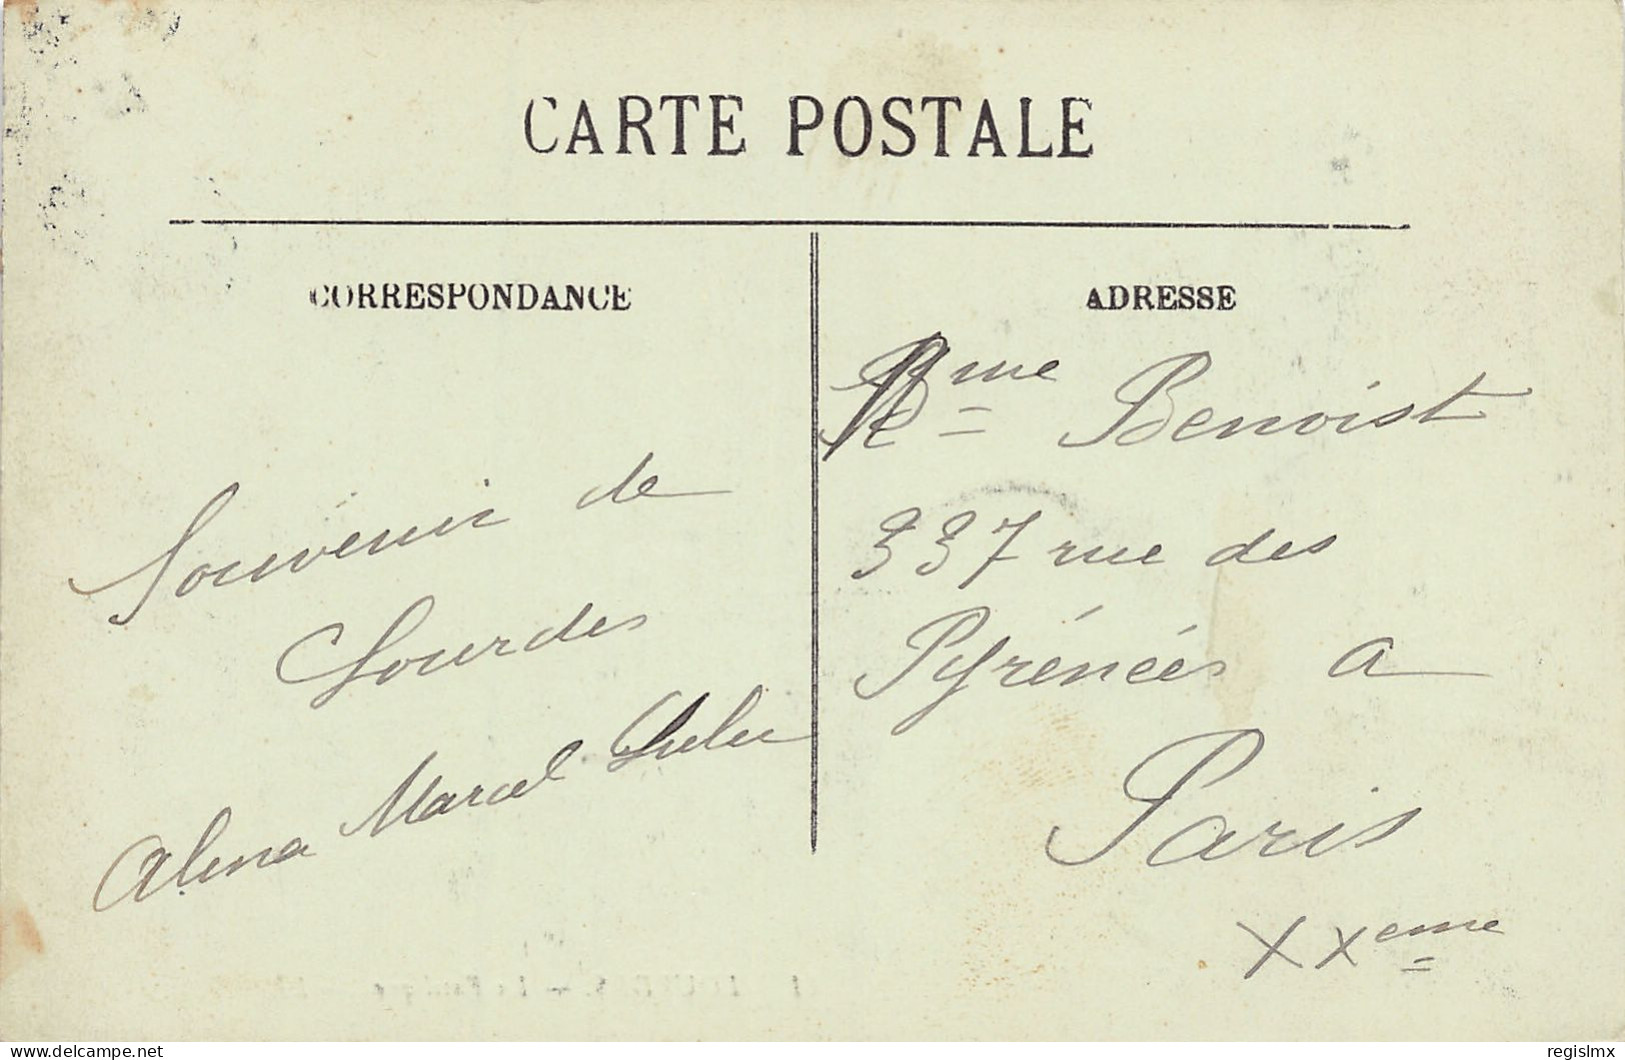 CARTE POSTALE
CORRESPONDANCE
Souvenir de
Lourdes
Alina Marcel Lulu
ADRESSE
Mme Benoist
337 rue des
Pyrénées a
Paris
XXeme
delcampe.net
regislmx